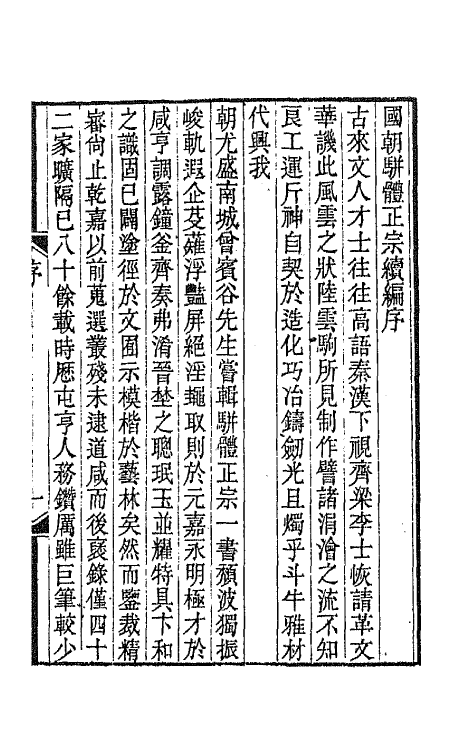 國朝駢體正宗續編序
古來文人才士往往高語秦漢下視齊梁李士恢請革文
華譏此風雲之狀陸雲駒所見制作譬諸涓澮之流不知
良工運斤神自契於造化巧冶鑄劒光且燭乎斗牛雅材
代興我
朝尤盛南城曾賓谷先生嘗輯駢體正宗一書頹波獨振
峻軌遐企芟蕹浮豔屏絕淫䵷取則於元嘉永明極才於
咸亨調露鐘釜齊奏弗淆晉埜之聰珉玉並耀特具卞和
之識固已闢塗徑於文囿示模楷於藝林矣然而鑒裁精
審尙止乾嘉以前蒐選叢殘未逮道咸而後裒錄僅四十
二家曠隔已八十餘載時歷屯亨人務鑽厲雖巨筆較少
序
一